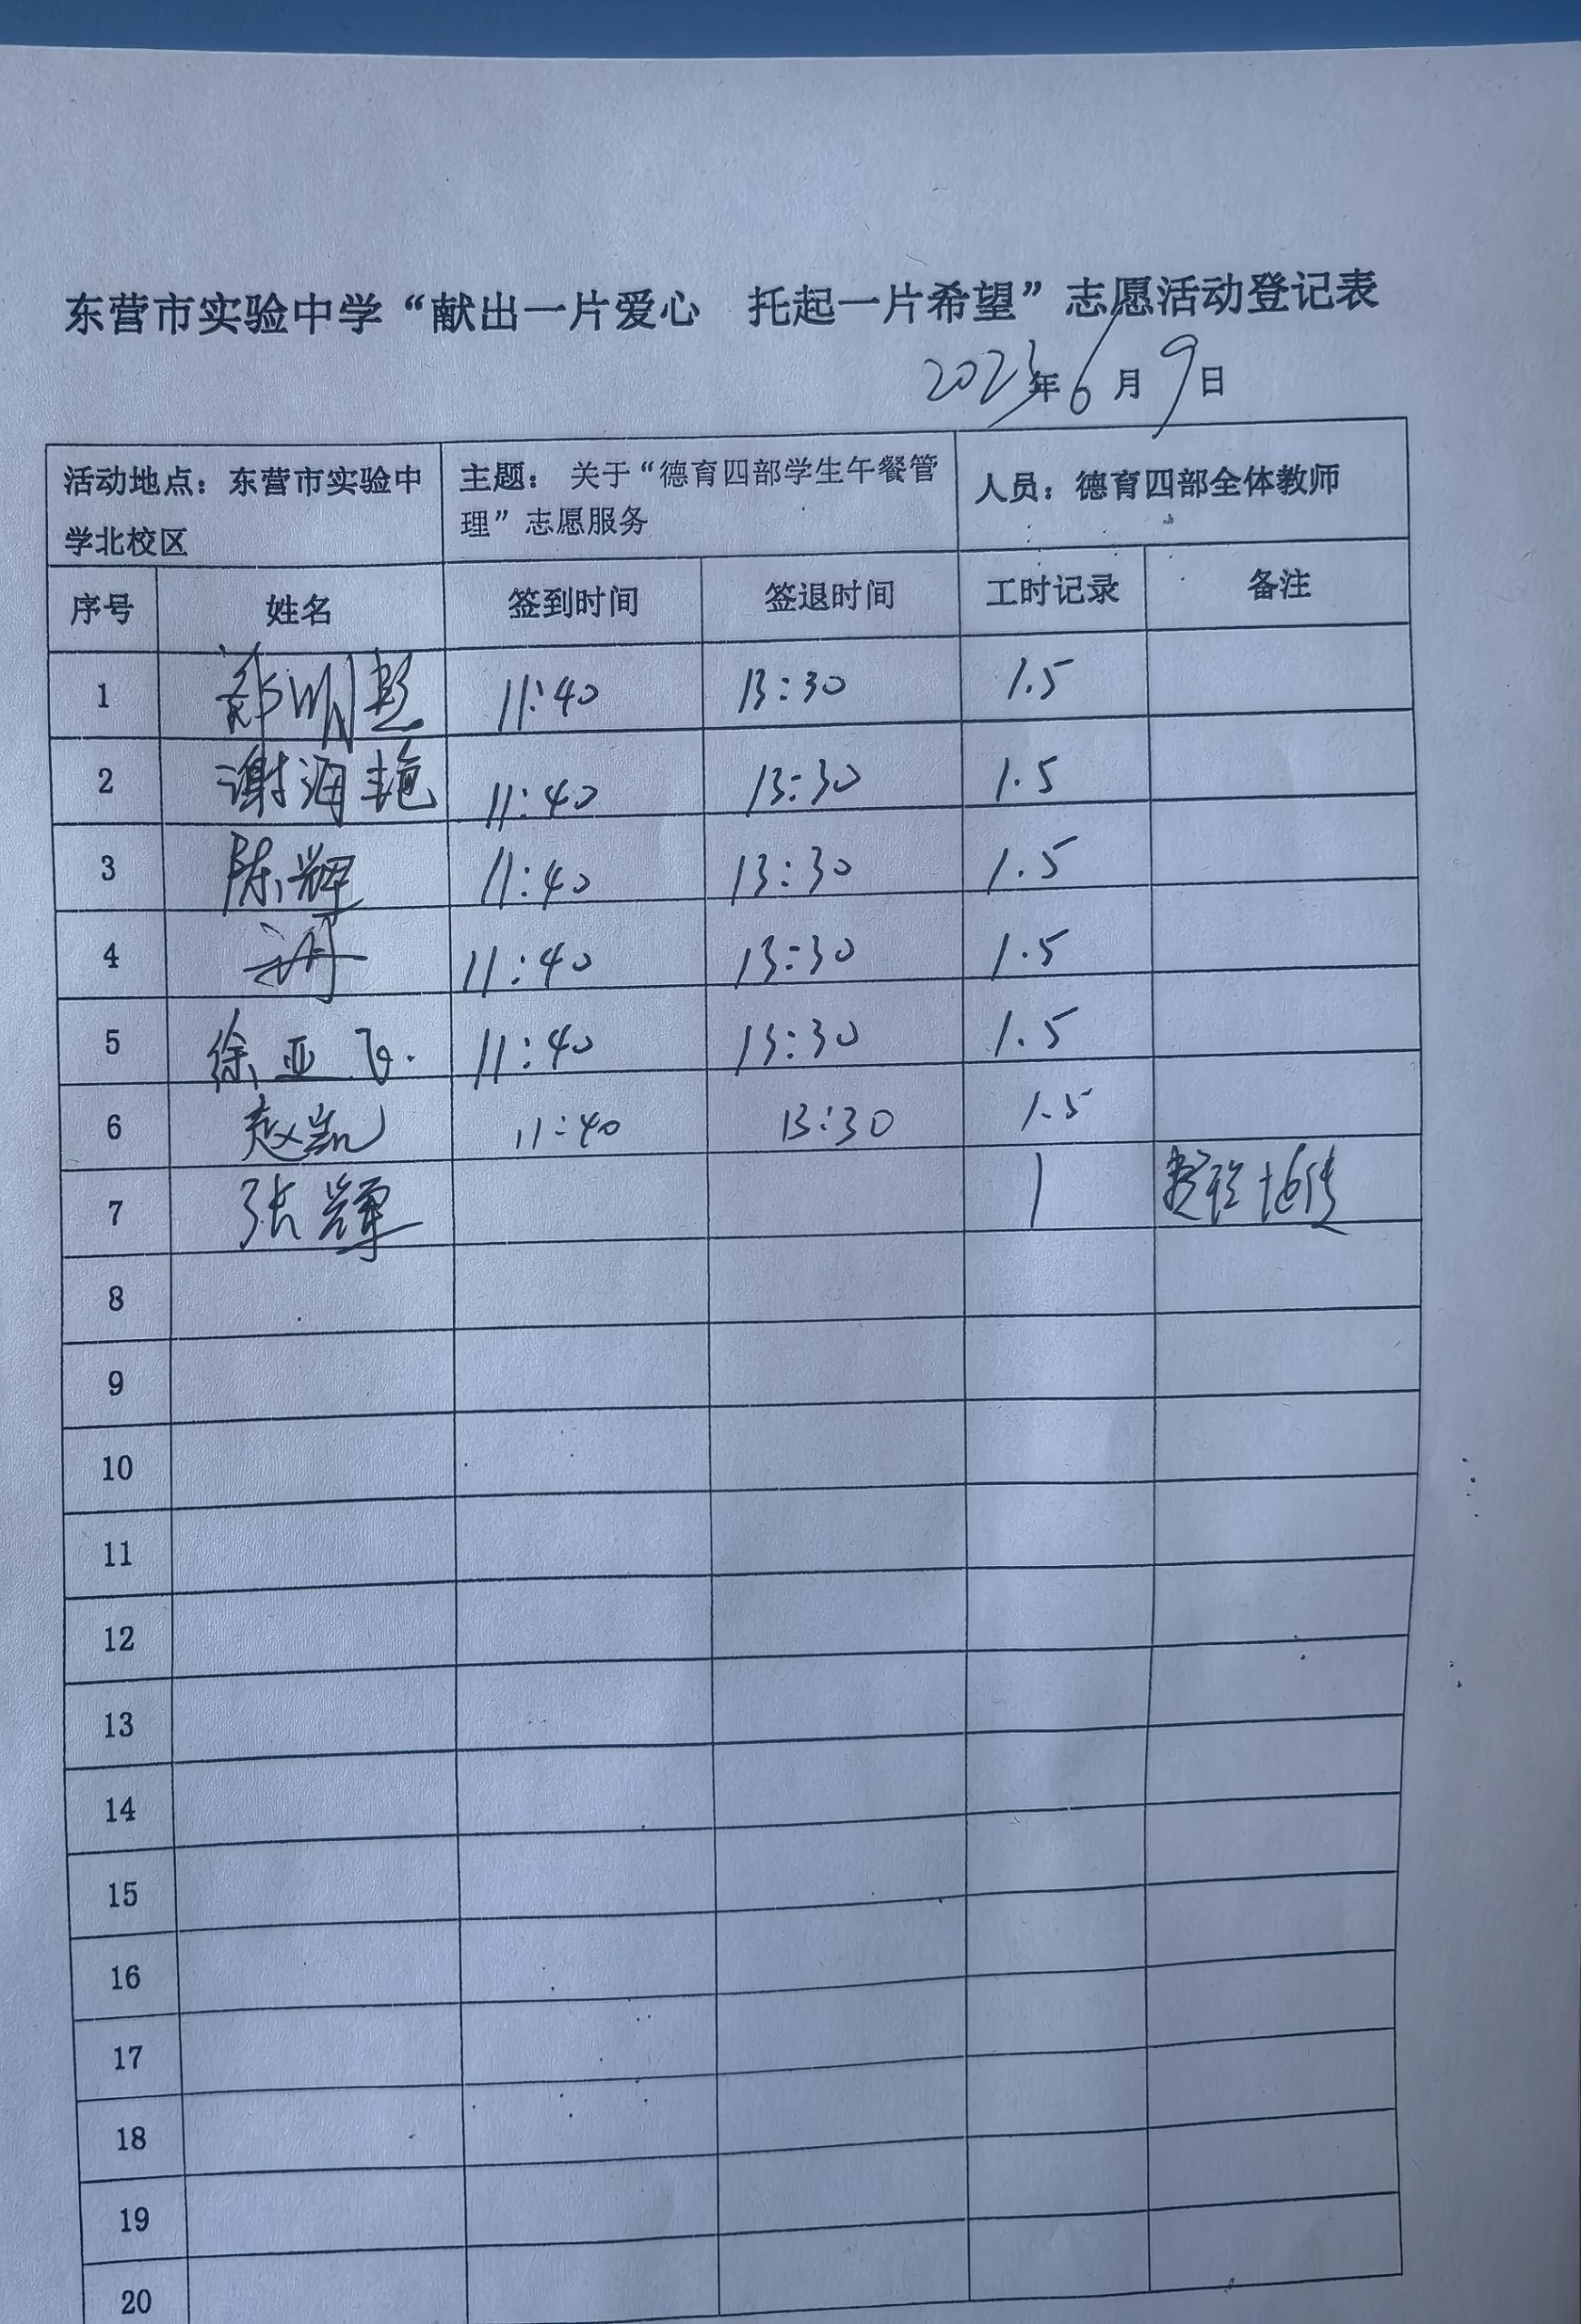 东营市实验中学“献出一片爱心 托起一片希望”志愿活动登记表
2023年6月9日
活动地点：东营市实验中学北校区 主题：关于“德育四部学生午餐管理”志愿服务 人员：德育四部全体教师
序号 姓名 签到时间 签退时间 工时记录 备注
1 11:40 13:30 1.5
2 谢海艳 11:40 13:30 1.5
3 陈辉 11:40 13:30 1.5
4 11:40 13:30 1.5
5 徐亚飞 11:40 13:30 1.5
6 赵凯 11:40 13:30 1.5
7 张辉 1
8
9
10
11
12
13
14
15
16
17
18
19
20